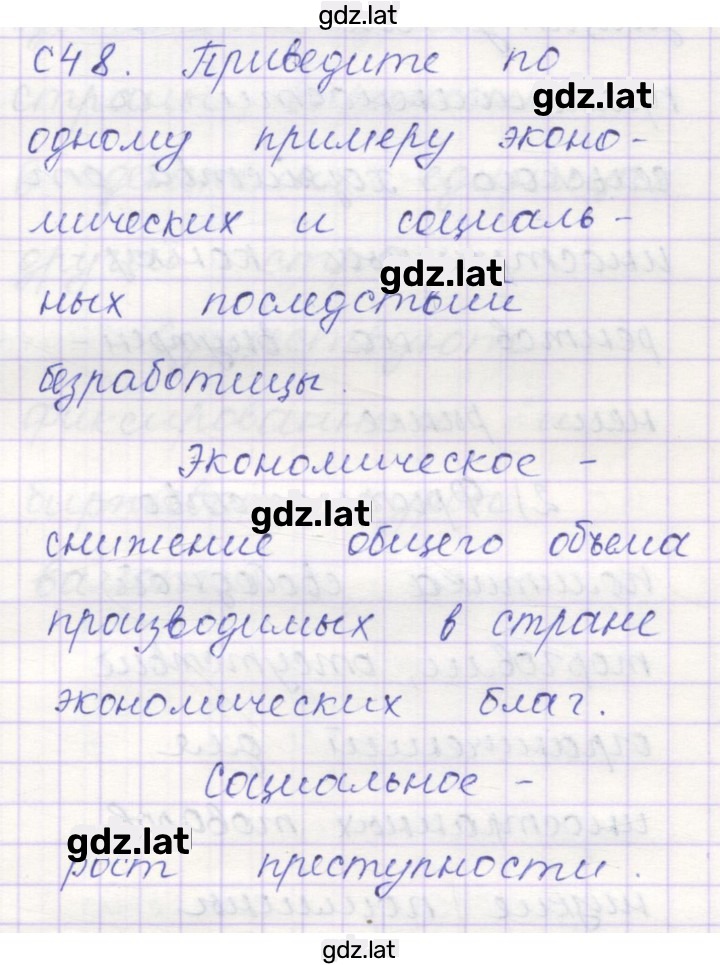 gdz.lat
С48. Приведите по
gdz.lat
одному примеру эконо-
мических и социаль-
gdz.lat
ных последствий
безработицы.
Экономическое -
gdz.lat
снижение общего объёма
производимых в стране
экономических благ.
Социальное -
gdz.lat
рост преступности.
gdz.lat